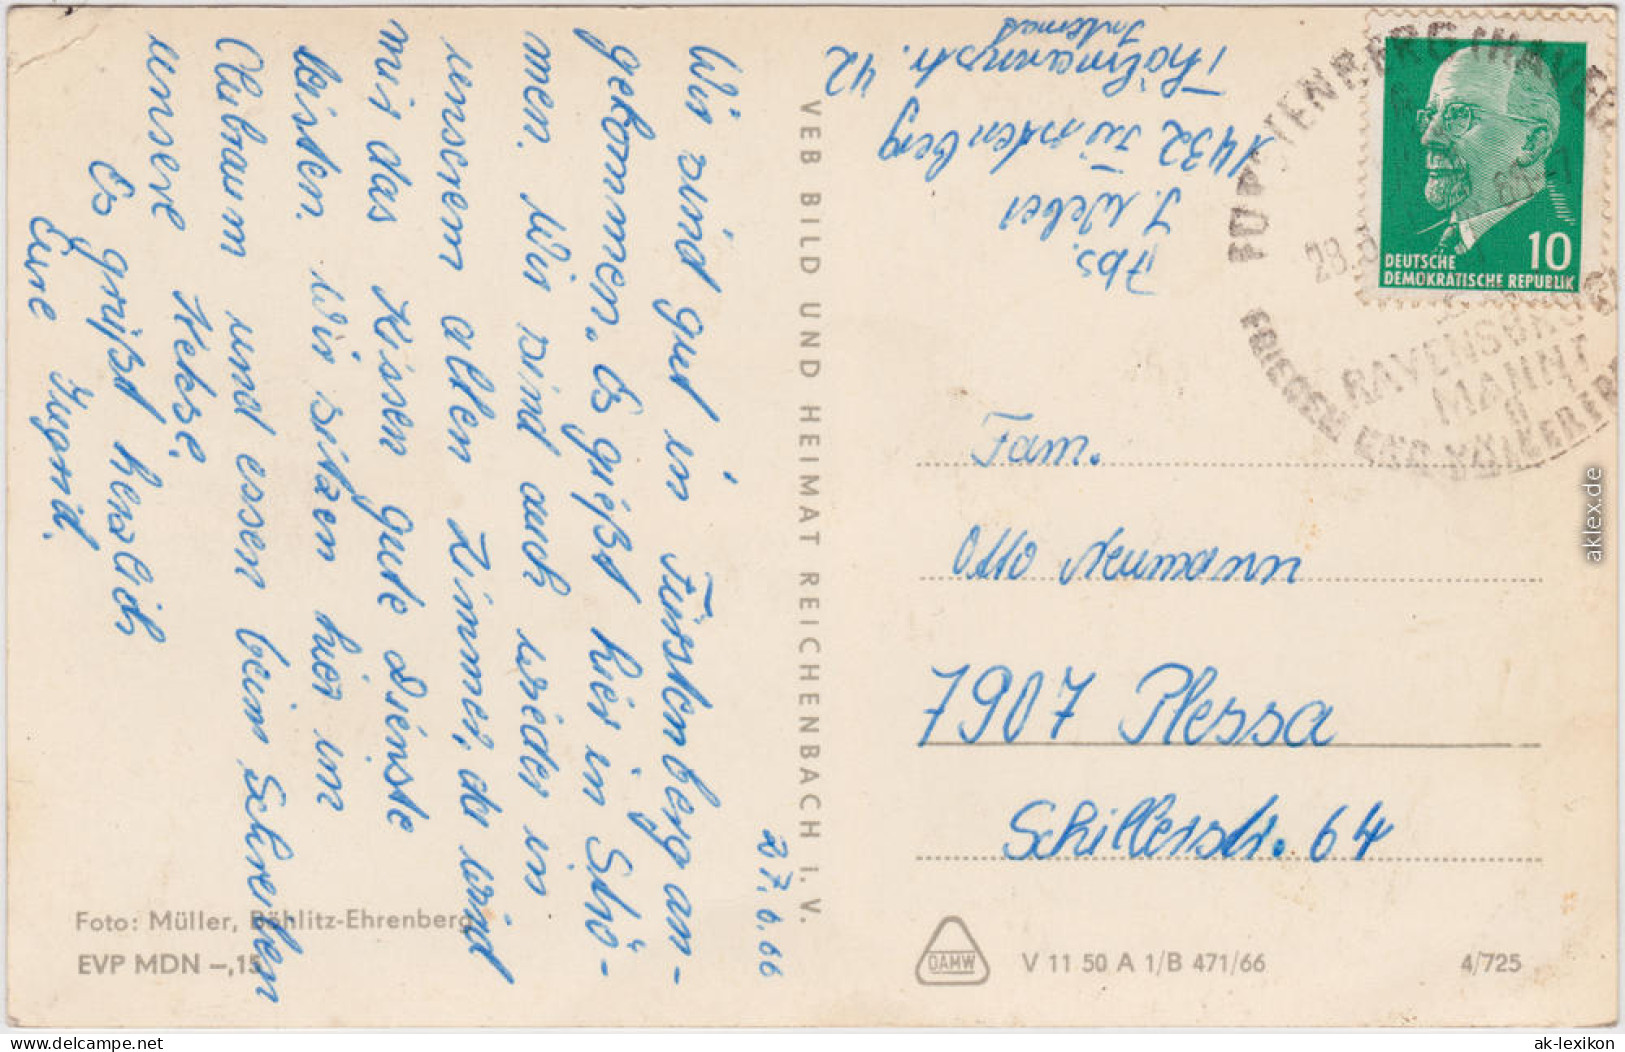 27.6.66
Wir sind gut in Fürstenberg an-
gekommen. Es gießt hier in Strö-
men. Wir sind auch wieder in
unserem alten Zimmer, da wird
mir das Kissen gute Dienste
leisten. Wir sitzen hier im
Klubraum und essen beim Schreiben
unsere Kekse.
Es grüßt herzlich
Eure Ingrid.
Foto: Müller, Böhlitz-Ehrenberg
EVP MDN –,15
VEB BILD UND HEIMAT REICHENBACH I. V.
Abs.
I. Weber
1432 Fürstenberg
Thälmannstr. 42
Internat
FÜRSTENBERG (HAVEL)
28.6.
RAVENSBRÜCK
MAHNT
FRIEDEN DER VÖLKER
10
DEUTSCHE
DEMOKRATISCHE REPUBLIK
Fam.
Otto Neumann
7907 Plessa
Schillerstr. 64
DAMW
V 11 50 A 1/B 471/66
4/725
aklex.de
delcampe.net
ak-lexikon